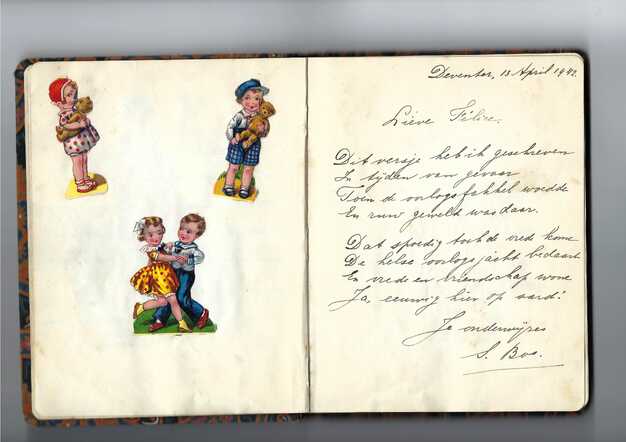 Deventer, 13 April 1942.
Lieve Féline.
Dit versje heb ik geschreven
In tijden van gevaar
Toen de oorlogsfakkel woedde
En ruw geweld was daar.
Dat spoedig toch de vrede kome
De helse oorlogsjacht bedaart
En vrede en vriendschap wone
Ja, eeuwig hier op aard!
Je onderwijzeres
S. Bos.